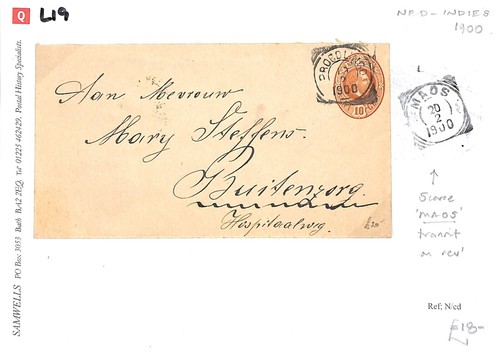 Q L19
NED-INDIES
1900
Aan Mevrouw
Mary Steffens.
Buitenzorg.
Hospitaalweg.
1900
10
MAOS
20
2
1900
Scarce
'MAOS'
transit
on rev'
Ref; N/cd
£18-
SAMWELLS PO Box 3055 Bath BA2 2EQ. Tel 01225 462429. Postal History Specialists.